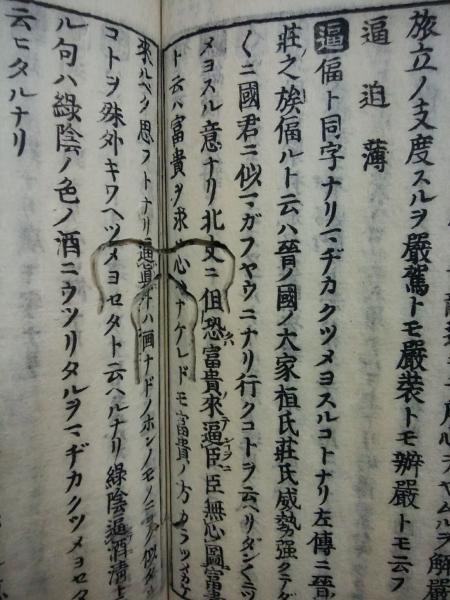 旅立ノ支度スルヲ嚴駕トモ嚴装トモ辨嚴トモ云フ
逼 迫 薄
逼偪ト同字ナリマヂカクツメヨスルコトナリ左傳ニ晉
莊之族偪ルト云ハ晉ノ國ノ大家桓氏莊氏威勢強
クニ國君ニ似マガフヤウニナリ行クコトヲ云ヘリダンくニツ
メヨスル意ナリ北史ニ但恐富貴來逼臣臣無心圖富貴
ト云ハ富貴ヲ求 心 ナケレドモ富貴ノ方カラ
來ルベク思フトナリ逼眞 ハ画ナドノホンノモノニ 似
コトヲ殊外キワヘツメヨセタト云ヘルナリ綠陰逼酒清
ル句ハ綠陰ノ色ノ酒ニウツリタルヲマヂカクツメヨセタ
云ヒタルナリ